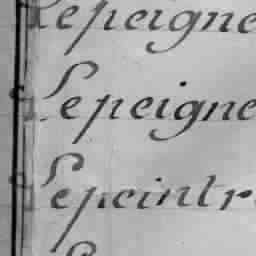 Lepeigne
Lepeigne
Lepeintr